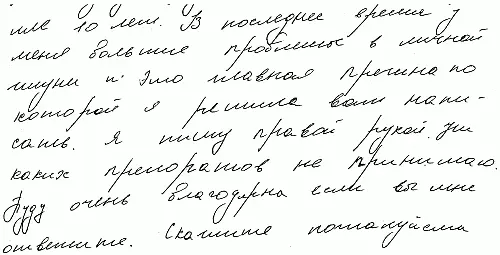 мне 10 лет. В последнее время у
меня большие проблемы в личной
жизни и это главная причина по
которой я решила вам напи-
сать. Я пишу правой рукой. Ни
каких препоратов не принимаю.
Буду очень благодарна если вы мне
ответите. Скажите пожалуйста